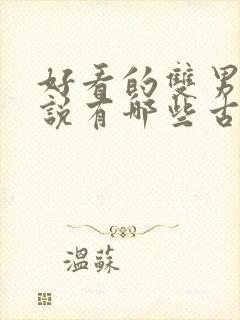 好看的雙男
說有哪些古
溫蘇